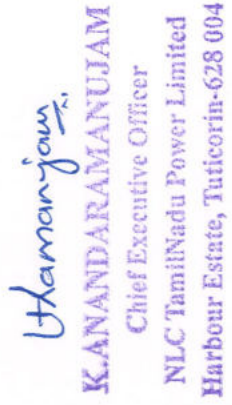 K.ANANDARAMANUJAM
Chief Executive Officer
NLC TamilNadu Power Limited
Harbour Estate, Tuticorin-628 004